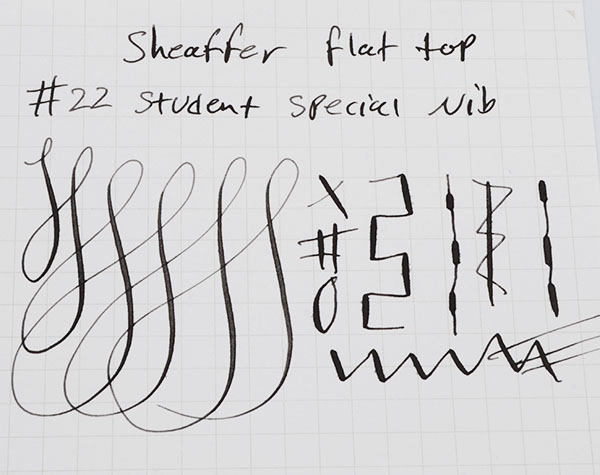 Sheaffer flat top
#22 Student Special Nib
X
#
O